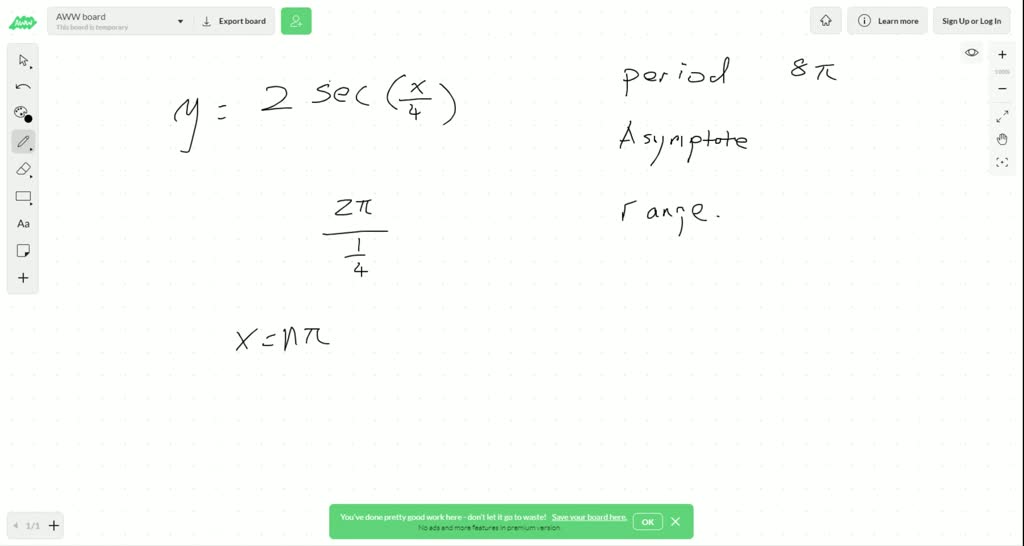 AWW
AWW board
This board is temporary
Export board
Learn more
Sign Up or Log In
y = 2 sec (x/4)
period 8π
Asymptote
range.
2π
1
4
x=nπ
Aa
1/1
You've done pretty good work here - don't let it go to waste! Save your board here.
No ads and more features in premium version.
OK